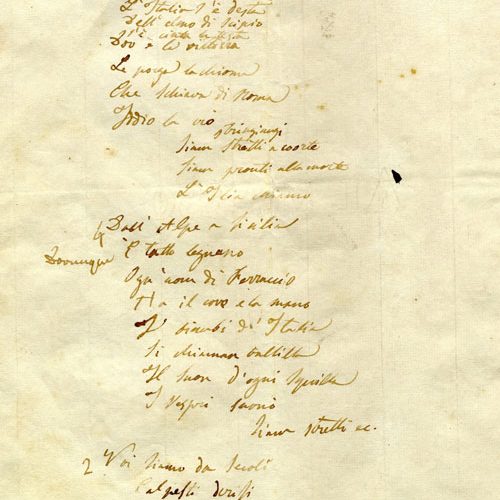 L'Italia s'è desta
Dell'elmo di Scipio
S'è cinta la testa
Dov'è la vittoria
Le porga la chioma
Che schiava di Roma
Iddio la creò
Stringiamci
Siam stretti a coorte
Siam pronti alla morte
L'Italia chiamò
4 Dall'Alpe a Sicilia
Dovunque
È tutto Legnano
Ogn'uom di Ferruccio
Ha il core e la mano
I bimbi d'Italia
Si chiaman Balilla
Il suon d'ogni squilla
I Vespri suonò
Siam stretti ec.
2 Noi siamo da secoli
Calpesti derisi